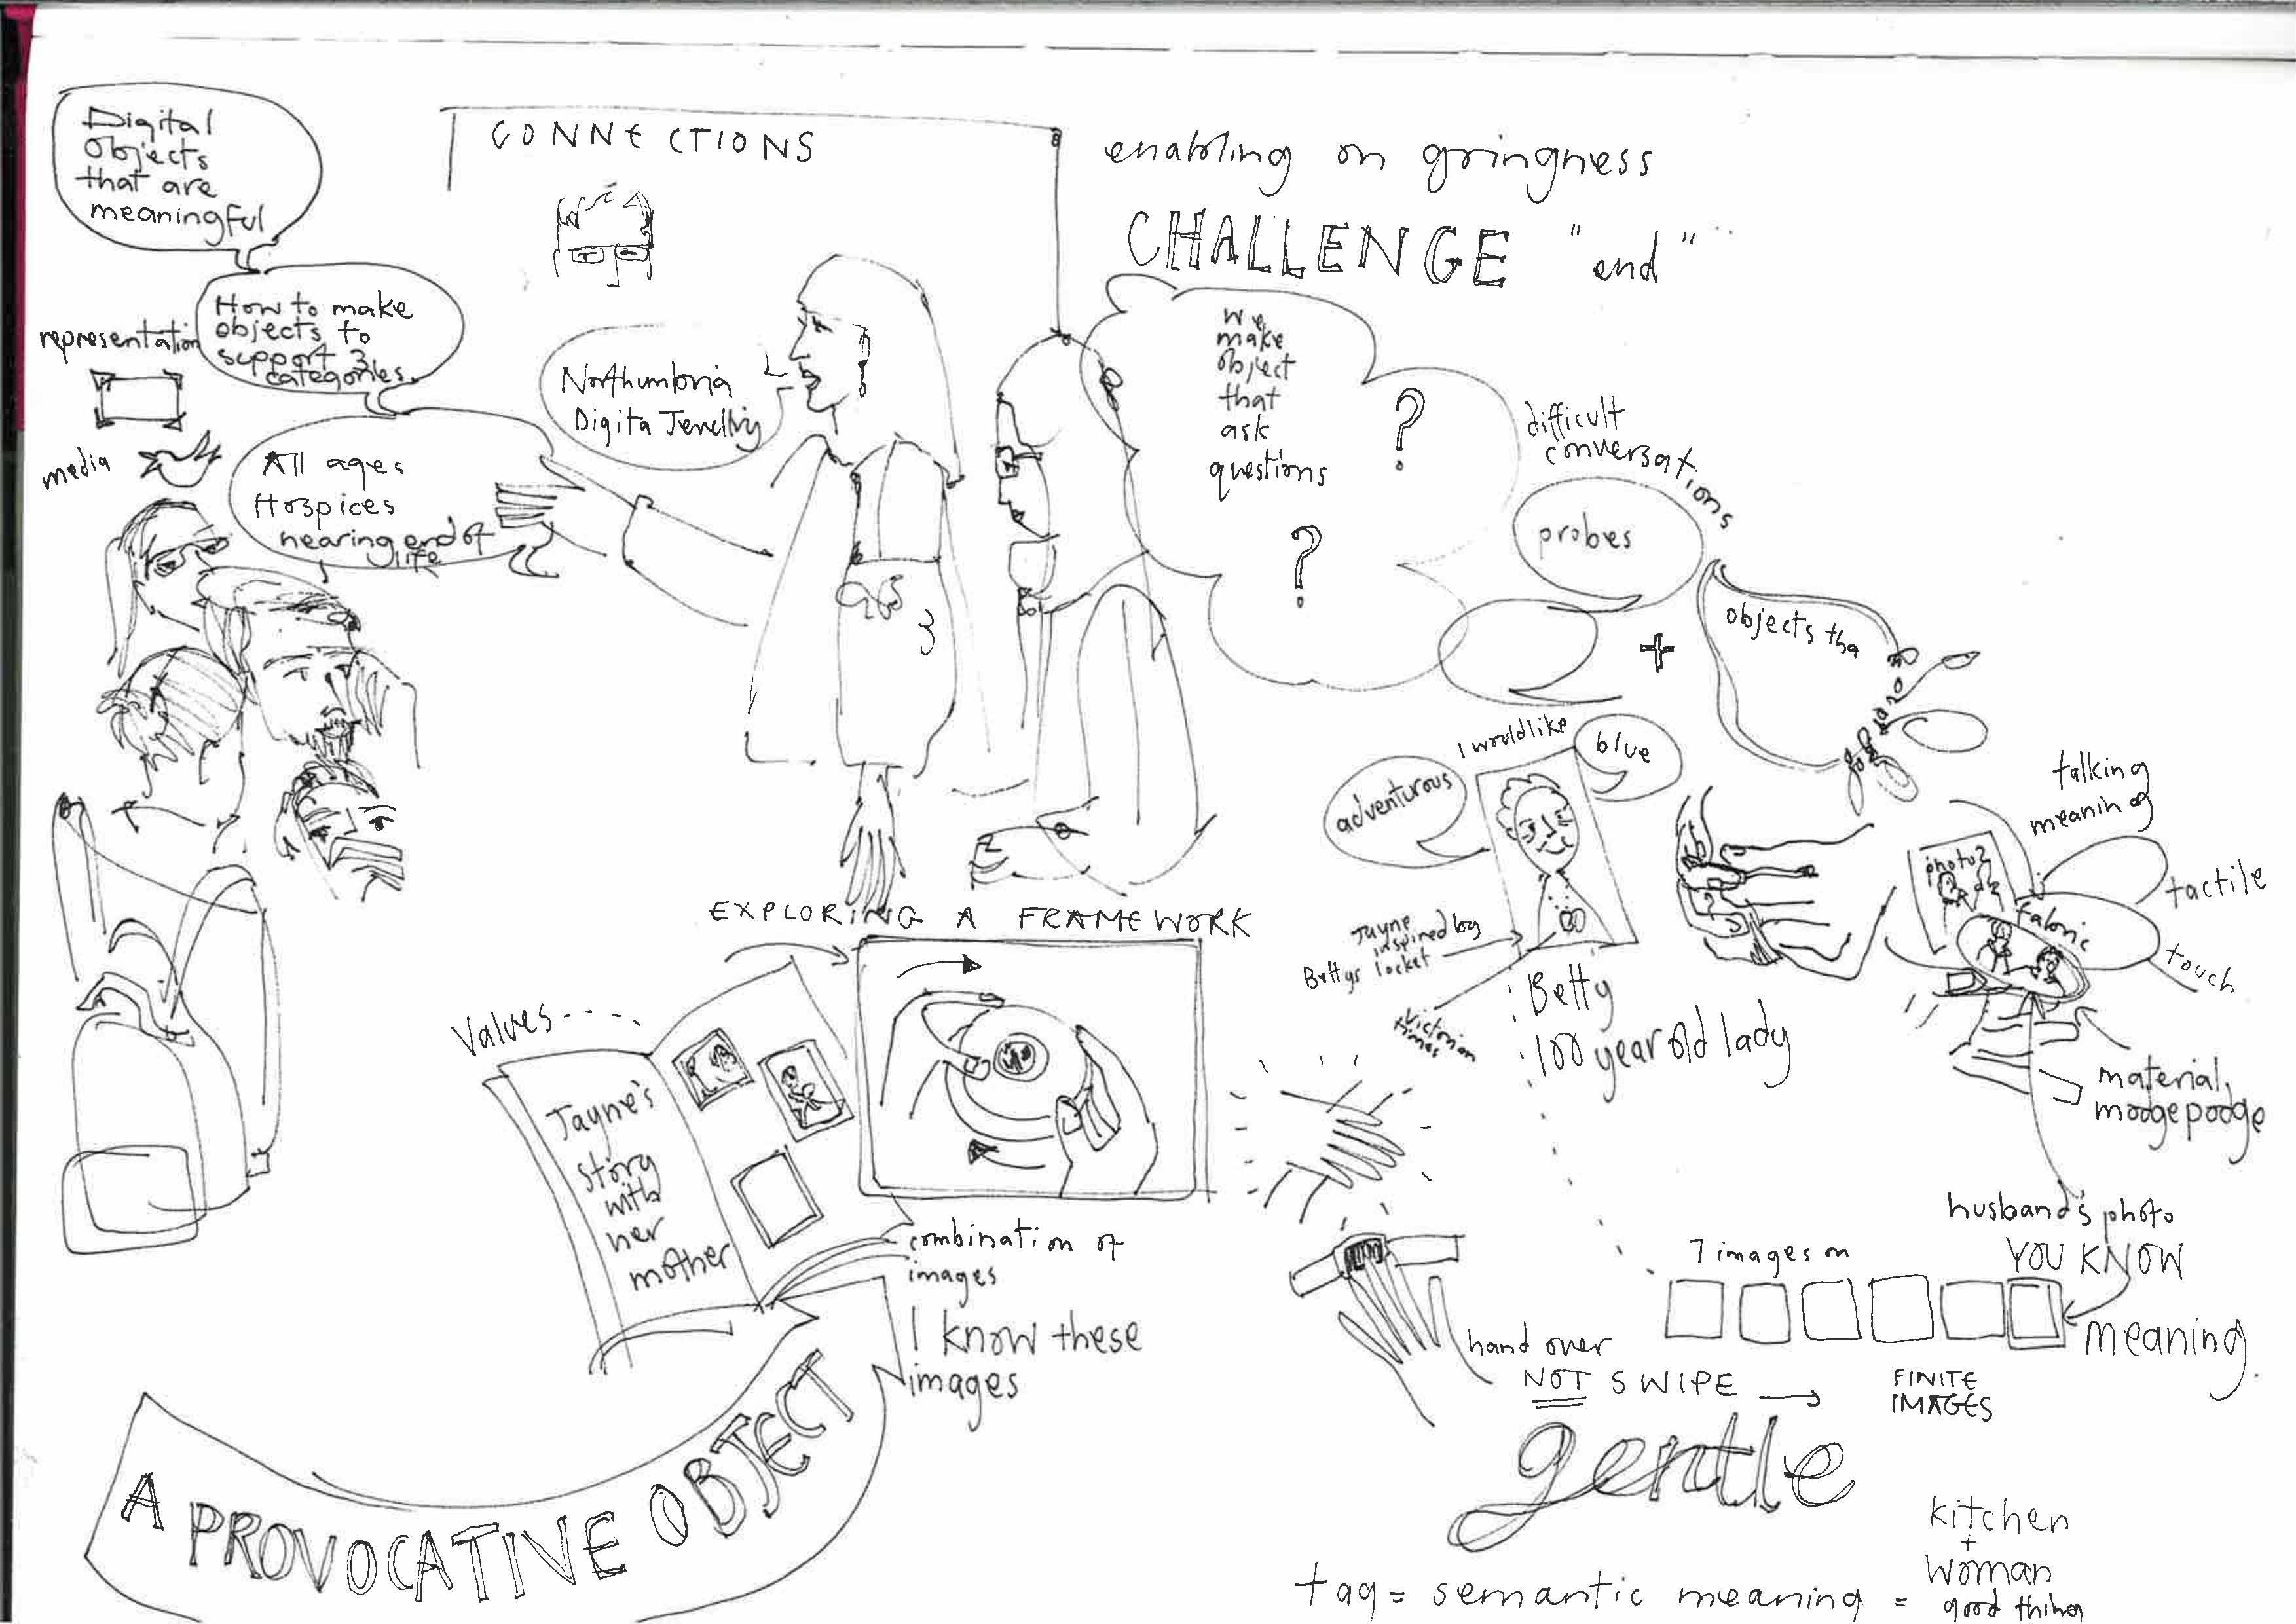 Digital
objects
that are
meaningful
How to make
objects to
support 3
categories.
representation
media
All ages
Hospices
nearing end of
life
CONNECTIONS
Northumbria
Digita Jewellry
enabling on goingness
CHALLENGE "end"
We
make
object
that
ask
questions
?
?
difficult
conversations
probes
+
objects tha
I would like
blue
adventurous
Jayne
inspired by
Bettys locket
Victorian
times
Betty
100 year old lady
talking
meaning
photo
fabric
tactile
touch
material,
modge podge
EXPLORING A FRAMEWORK
Values
Jayne's
story
with
her
mother
combination of
images
I know these
images
A PROVOCATIVE OBJECT
husband's photo
YOU KNOW
7 images on
meaning.
hand over
NOT SWIPE
FINITE
IMAGES
gentle
kitchen
+
woman
good thing
tag = semantic meaning =